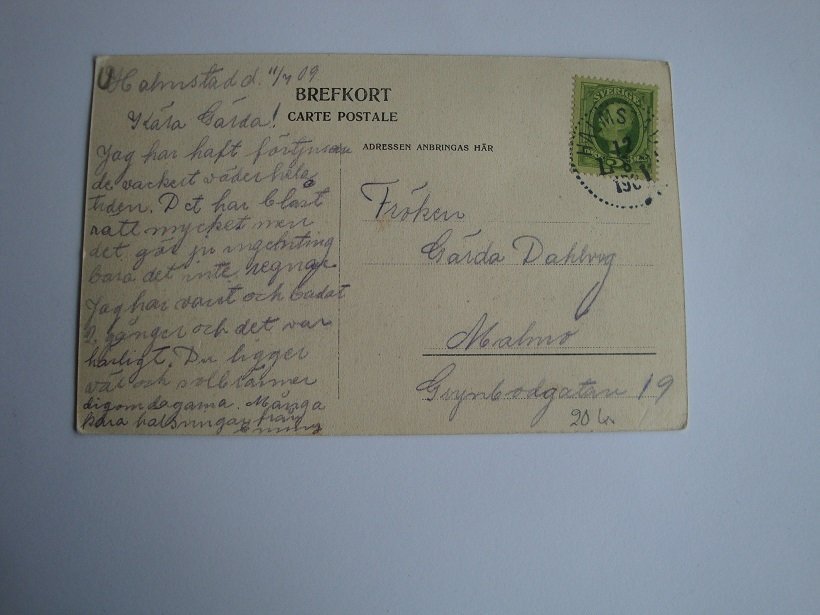 Halmstad d. 11/7 09.
Kära Gärda!
Jag har haft förtjusan
de vackert väder hela
tiden. Det har blåst
rätt mycket men
det gör ju ingenting
bara det inte regnar
Jag har varit och badat
2 gånger och det var
härligt. Du ligger
väl och solbränner
dig om dagarna. Många
kära hälsningar från
BREFKORT
CARTE POSTALE
ADRESSEN ANBRINGAS HÄR
SVERIGE
12
Fröken
Gärda Dahlvig
Malmö
19
20 kr